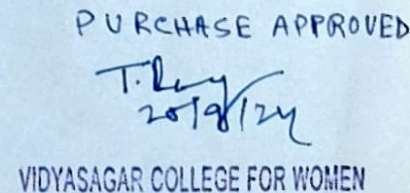 PURCHASE APPROVED
T. Ray
20/9/24
VIDYASAGAR COLLEGE FOR WOMEN